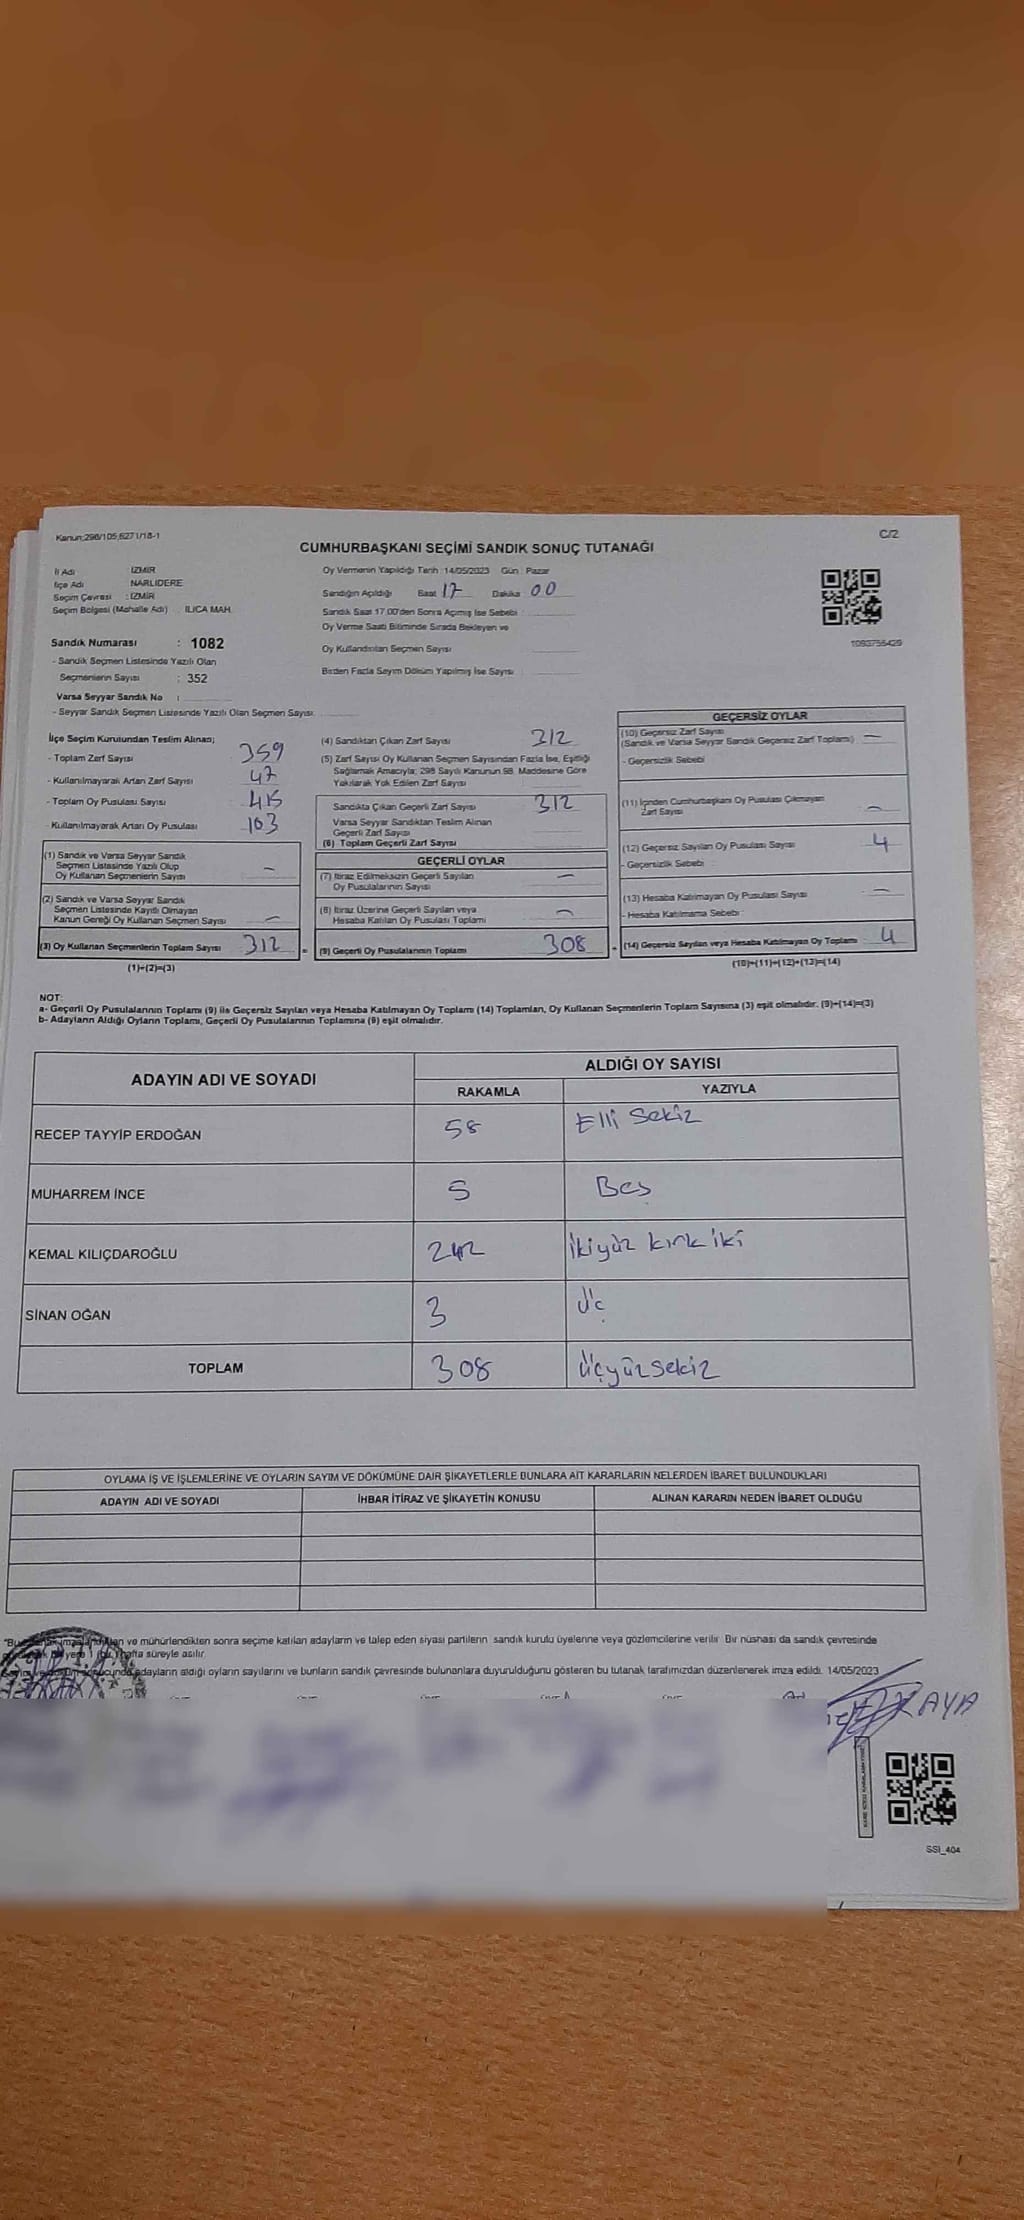 Kanun;298/105,6271/18-1
C/2
CUMHURBAŞKANI SEÇİMİ SANDIK SONUÇ TUTANAĞI
İl Adı İZMİR
İlçe Adı NARLIDERE
Seçim Çevresi : İZMİR
Seçim Bölgesi (Mahalle Adı) : ILICA MAH.
Oy Vermenin Yapıldığı Tarih :14/05/2023 Gün : Pazar
Sandığın Açıldığı Saat 17 Dakika 00
Sandık Saat 17.00'den Sonra Açılmış İse Sebebi :
Oy Verme Saati Bitiminde Sırada Bekleyen ve
Oy Kullandırılan Seçmen Sayısı
Birden Fazla Sayım Döküm Yapılmış İse Sayısı :
1093755429
Sandık Numarası : 1082
- Sandık Seçmen Listesinde Yazılı Olan
Seçmenlerin Sayısı : 352
Varsa Seyyar Sandık No :
- Seyyar Sandık Seçmen Listesinde Yazılı Olan Seçmen Sayısı:
İlçe Seçim Kurulundan Teslim Alınan;
- Toplam Zarf Sayısı 359
- Kullanılmayarak Artan Zarf Sayısı 47
- Toplam Oy Pusulası Sayısı 415
- Kullanılmayarak Artan Oy Pusulası 103
(1) Sandık ve Varsa Seyyar Sandık
Seçmen Listesinde Yazılı Olup
Oy Kullanan Seçmenlerin Sayısı –
(2) Sandık ve Varsa Seyyar Sandık
Seçmen Listesinde Kayıtlı Olmayan
Kanun Gereği Oy Kullanan Seçmen Sayısı –
(3) Oy Kullanan Seçmenlerin Toplam Sayısı 312 =
(1)+(2)=(3)
(4) Sandıktan Çıkan Zarf Sayısı 312
(5) Zarf Sayısı Oy Kullanan Seçmen Sayısından Fazla İse, Eşitliği
Sağlamak Amacıyla; 298 Sayılı Kanunun 98. Maddesine Göre
Yakılarak Yok Edilen Zarf Sayısı
Sandıkta Çıkan Geçerli Zarf Sayısı 312
Varsa Seyyar Sandıktan Teslim Alınan
Geçerli Zarf Sayısı
(6) Toplam Geçerli Zarf Sayısı
GEÇERLİ OYLAR
(7) İtiraz Edilmeksizin Geçerli Sayılan
Oy Pusulalarının Sayısı –
(8) İtiraz Üzerine Geçerli Sayılan veya
Hesaba Katılan Oy Pusulası Toplamı –
(9) Geçerli Oy Pusulalarının Toplamı 308 +
GEÇERSİZ OYLAR
(10) Geçersiz Zarf Sayısı
(Sandık ve Varsa Seyyar Sandık Geçersiz Zarf Toplamı) –
- Geçersizlik Sebebi
(11) İçinden Cumhurbaşkanı Oy Pusulası Çıkmayan
Zarf Sayısı –
(12) Geçersiz Sayılan Oy Pusulası Sayısı 4
- Geçersizlik Sebebi :
(13) Hesaba Katılmayan Oy Pusulası Sayısı –
- Hesaba Katılmama Sebebi :
(14) Geçersiz Sayılan veya Hesaba Katılmayan Oy Toplamı 4
(10)+(11)+(12)+(13)=(14)
NOT:
a- Geçerli Oy Pusulalarının Toplamı (9) ile Geçersiz Sayılan veya Hesaba Katılmayan Oy Toplamı (14) Toplamları, Oy Kullanan Seçmenlerin Toplam Sayısına (3) eşit olmalıdır. (9)+(14)=(3)
b- Adayların Aldığı Oyların Toplamı, Geçerli Oy Pusulalarının Toplamına (9) eşit olmalıdır.
ADAYIN ADI VE SOYADI ALDIĞI OY SAYISI
RAKAMLA YAZIYLA
RECEP TAYYİP ERDOĞAN 58 Elli Sekiz
MUHARREM İNCE 5 Beş
KEMAL KILIÇDAROĞLU 242 İkiyüz kırk iki
SİNAN OĞAN 3 üç
TOPLAM 308 üçyüzsekiz
OYLAMA İŞ VE İŞLEMLERİNE VE OYLARIN SAYIM VE DÖKÜMÜNE DAİR ŞİKAYETLERLE BUNLARA AİT KARARLARIN NELERDEN İBARET BULUNDUKLARI
ADAYIN ADI VE SOYADI İHBAR İTİRAZ VE ŞİKAYETİN KONUSU ALINAN KARARIN NEDEN İBARET OLDUĞU
ve mühürlendikten sonra seçime katılan adayların ve talep eden siyasi partilerin sandık kurulu üyelerine veya gözlemcilerine verilir. Bir nüshası da sandık çevresinde
yere 1 (bir) hafta süreyle asılır.
adayların aldığı oyların sayılarını ve bunların sandık çevresinde bulunanlara duyurulduğunu gösteren bu tutanak tarafımızdan düzenlenerek imza edildi. 14/05/2023
KAYA
SSI_404